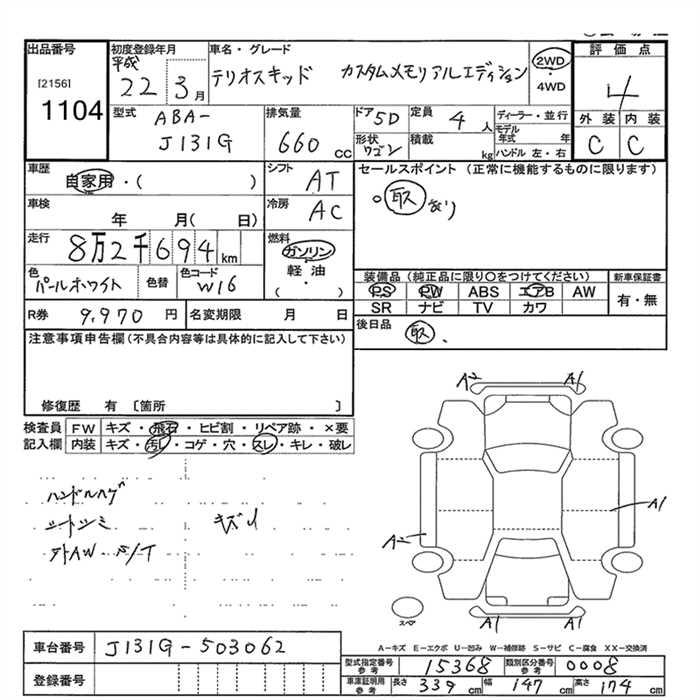 出品番号
[2156]
1104
初度登録年月
平成
22 3月
車名・グレード
テリオスキッド カスタムメモリアルエディション
2WD
・
4WD
評価点
4
外装 内装
C C
型式
ABA-
J131G
排気量
660 cc
ドア 5D
定員 4人
形状 ワゴン
積載 kg
ディーラー・並行
モデル年式 年
ハンドル 左・右
車歴
自家用・( )
シフト
AT
車検
年 月( 日)
冷房
AC
走行
8万2千694km
燃料
ガソリン
・
軽油
・
( )
色
パールホワイト
色替
色コード
W16
セールスポイント (正常に機能するものに限ります)
○取あり
装備品(純正品に限り○をつけてください)
PS PW ABS エアB AW
SR ナビ TV カワ
新車保証書
有・無
R券 9,970円
名変期限 月 日
後日品
取.
注意事項申告欄(不具合内容等は具体的に記入して下さい)
修復歴 有〔箇所 〕
検査員
記入欄
FW キズ・飛石・ヒビ割・リペア跡・×要
内装 キズ・汚レ・コゲ・穴・スレ・キレ・破レ
ハンドルハゲ
シートシミ キズ
外AW・S/T
A2 A1
A1
A2
A1 A1
スペア
A-キズ E-エクボ U-凹み W-補修跡 S-サビ C-腐食 XX-交換済
車台番号 J131G-503062
登録番号
型式指定番号 参考 15368
類別区分番号 参考 0008
車庫証明用 参考 長さ 339cm 幅 147cm 高さ 174cm